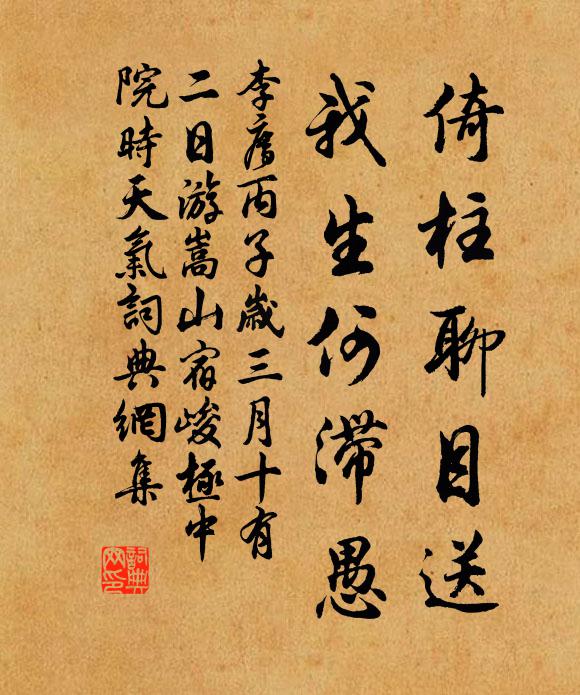 倚柱聊目送
我生何滯愚
李廌丙子歲三月十有
二日游嵩山宿峻極中
院時天氣詞典網集
詞典
网印